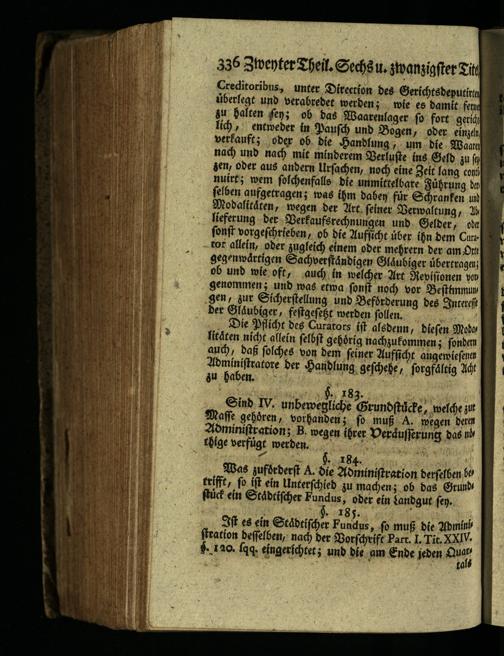 336 Zweyter Theil. Sechs u. zwanzigster Tite
Creditoribus, unter Direction des Gerichtsdeputirten
überlegt und verabredet werden; wie es damit ferne
zu halten sey; ob das Waarenlager so fort gericht
lich, entweder in Pausch und Bogen, oder einzeln,
verkauft; oder ob die Handlung, um die Waaren
nach und nach mit minderem Verluste ins Geld zu se
zen, oder aus andern Ursachen, noch eine Zeit lang conti
nuirt; wem solchenfalls die unmittelbare Führung der
selben aufgetragen; was ihm dabey für Schranken und
Modalitäten, wegen der Art seiner Verwaltung, Ab
lieferung der Verkaufsrechnungen und Gelder, oder
sonst vorgeschrieben, ob die Aufsicht über ihn dem Cura-
tor allein, oder zugleich einem oder mehrern der am Orte
gegenwärtigen Sachverständigen Gläubiger übertragen;
ob und wie oft, auch in welcher Art Revisionen vor
genommen; und was etwa sonst noch vor Bestimmun
gen, zur Sicherstellung und Beförderung des Interesse
der Gläubiger, festgesetzt werden sollen.
Die Pflicht des Curators ist alsdenn, diesen Moda
litäten nicht allein selbst gehörig nachzukommen; sondern
auch, daß solches von dem seiner Aufsicht angewiesenen
Administratore der Handlung geschehe, sorgfältig Acht
zu haben.
§. 183.
Sind IV. unbewegliche Grundstücke, welche zur
Masse gehören, vorhanden; so muß A. wegen deren
Administration; B. wegen ihrer Veräusserung das nö
thige verfügt werden.
§. 184.
Was zuförderst A. die Administration derselben be
trifft, so ist ein Unterschied zu machen; ob das Grund
stück ein Städtischer Fundus, oder ein Landgut sey.
§. 185.
Ist es ein Städtischer Fundus, so muß die Admini
stration desselben, nach der Vorschrift Part. I. Tit. XXIV.
§. 120. sqq. eingerichtet; und die am Ende jeden Quar
tals